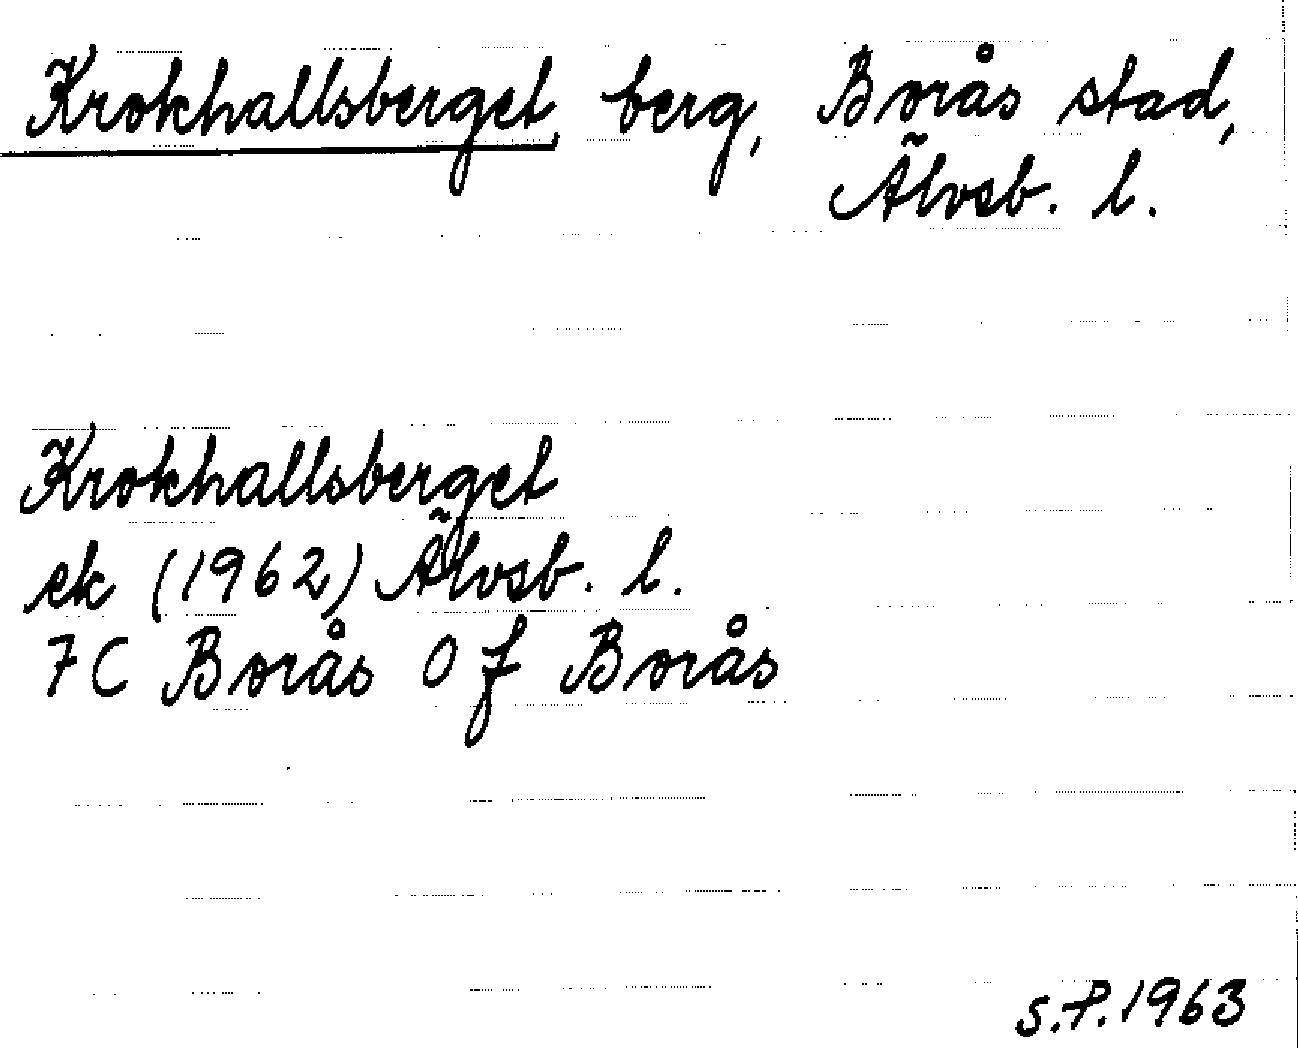 Krokhallsberget, berg, Borås stad,
Älvsb. l.
Krokhallsberget
ek (1962) Älvsb. l.
7C Borås 0 f Borås
S.P. 1963